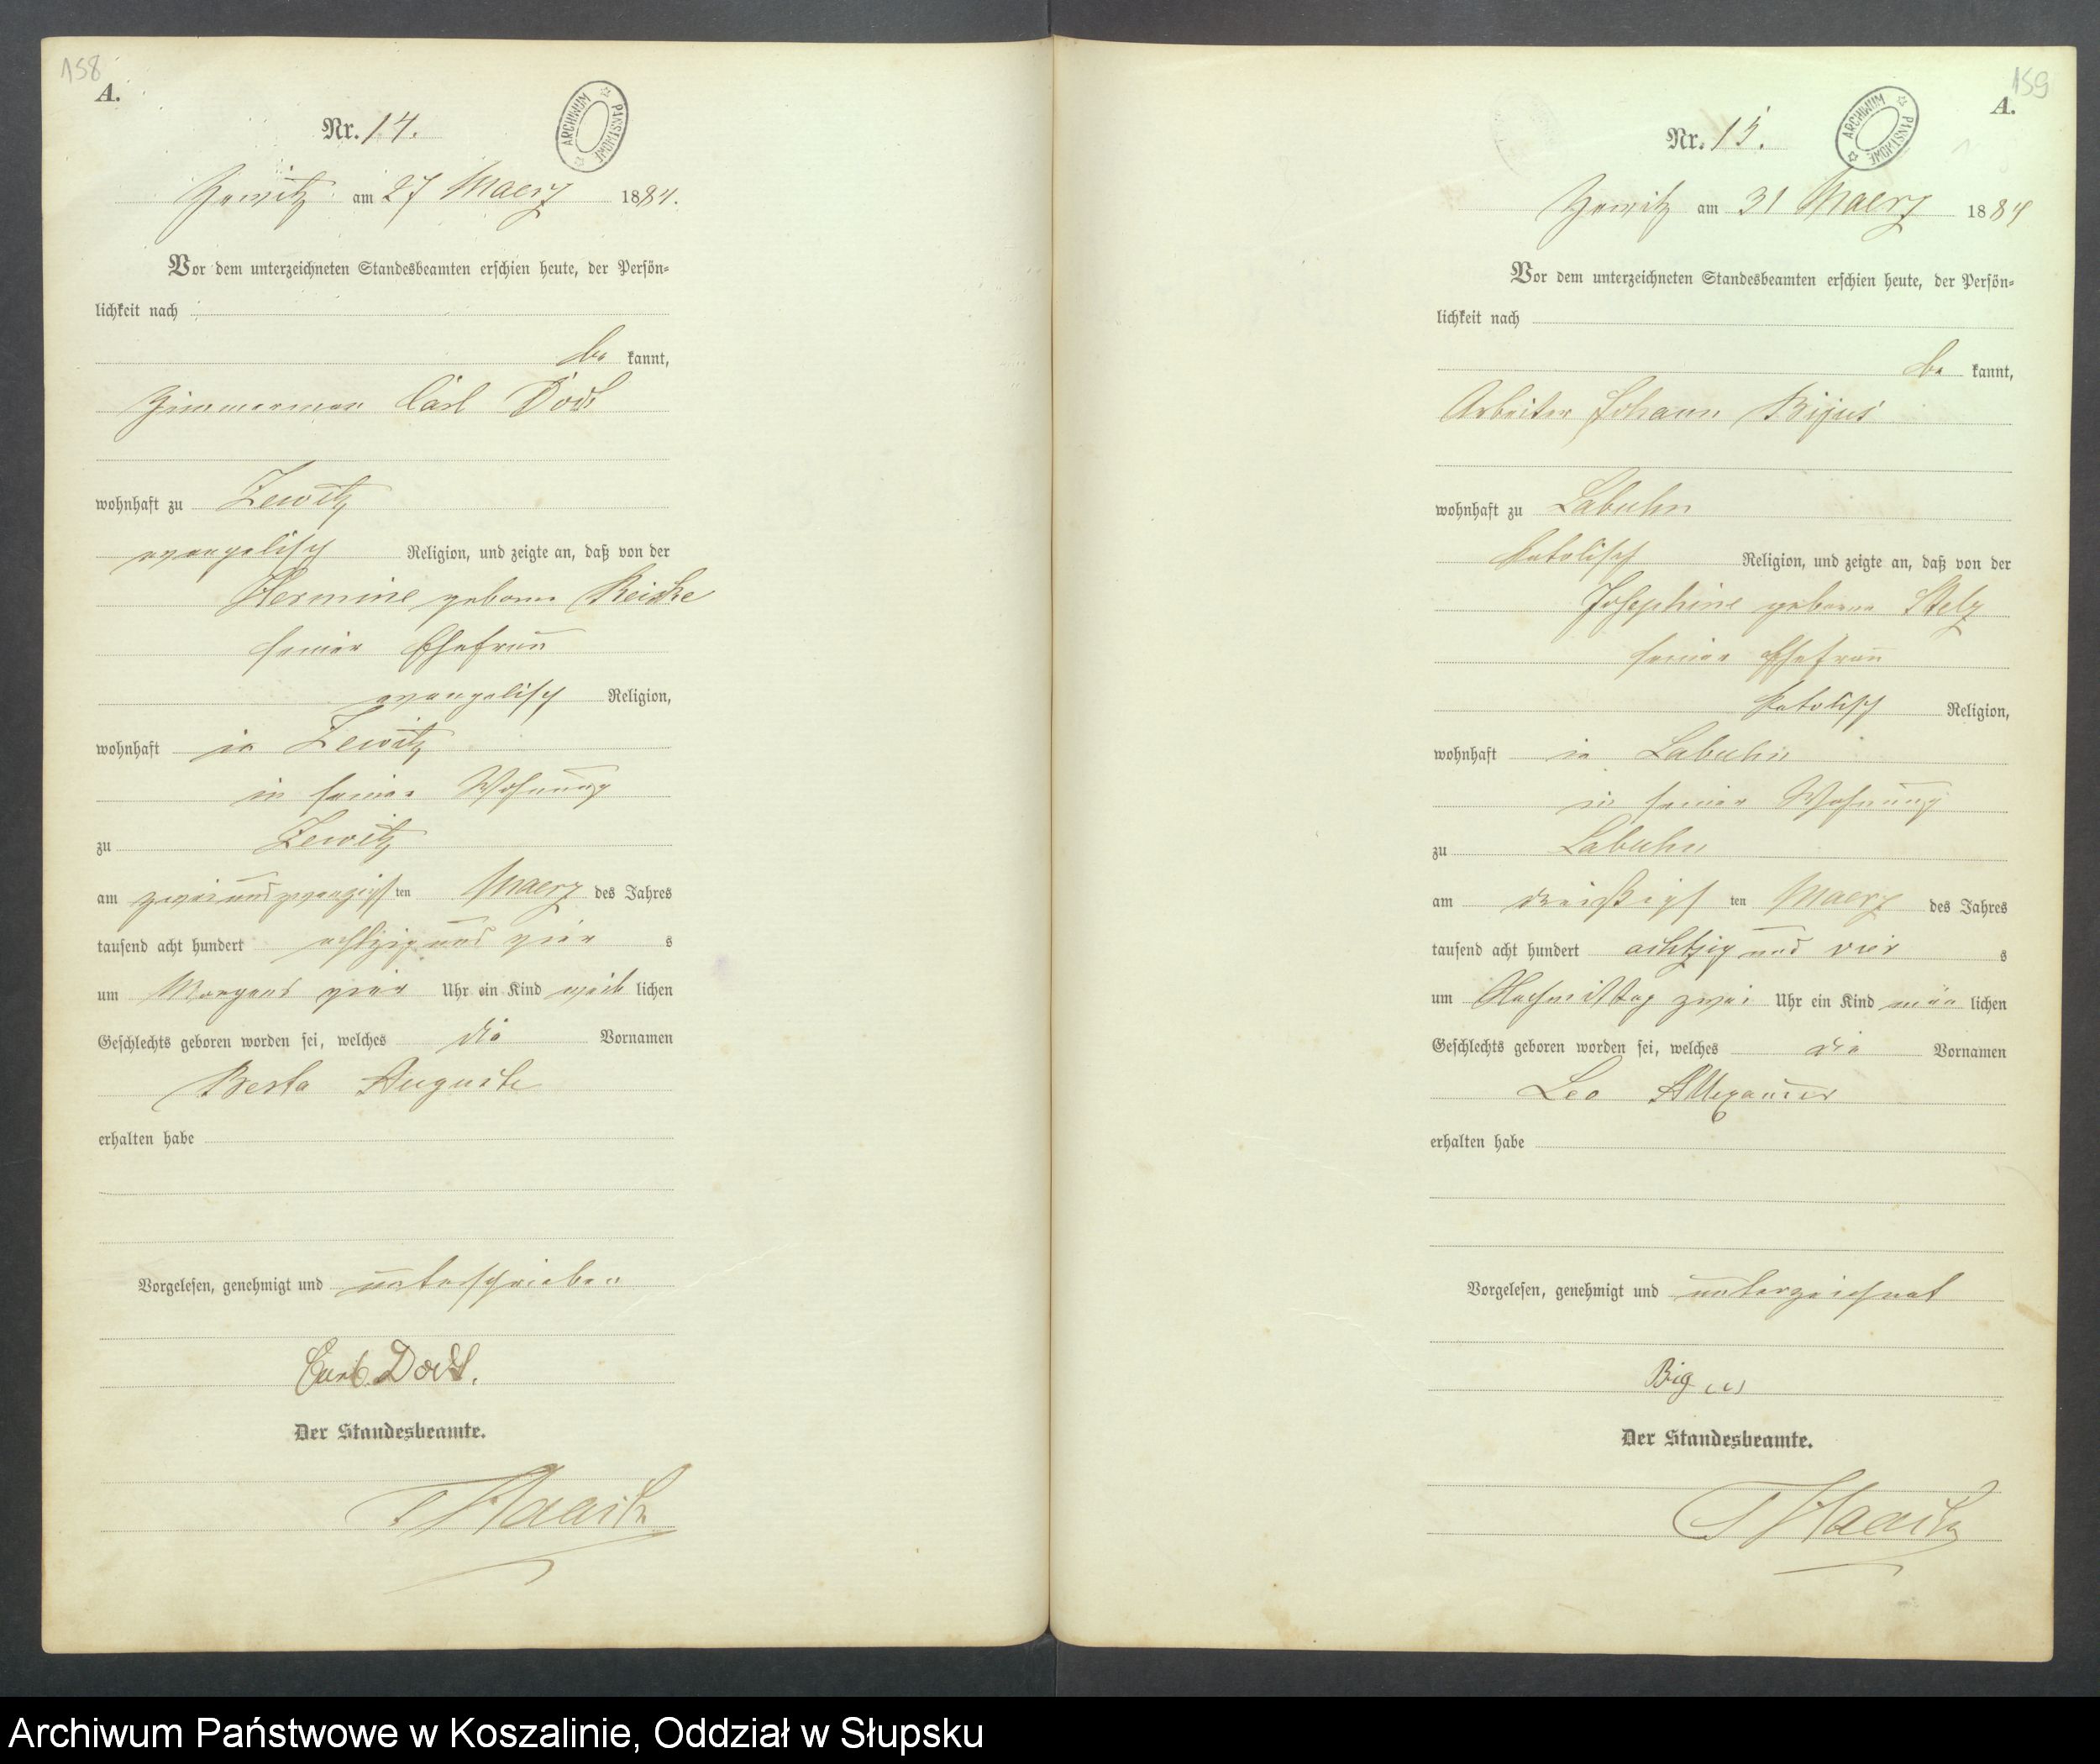 158
A.
Nr. 14.
ARCHIWUM PAŃSTWOWE
Zewitz am 27 Maerz 1884.
Vor dem unterzeichneten Standesbeamten erschien heute, der Persön-
lichkeit nach
be kannt,
Zimmerman Carl
wohnhaft zu Zewitz
evangelisch Religion, und zeigte an, daß von der
Hermine geborne
seiner Ehefrau
evangelisch Religion,
wohnhaft in Zewitz
in seiner Wohnung
zu Zewitz
am zweiundzwanzigsten Maerz des Jahres
tausend acht hundert achtzig und vier s
um Morgens vier Uhr ein Kind weib lichen
Geschlechts geboren worden sei, welches die Vornamen
Berta Auguste
erhalten habe
Vorgelesen, genehmigt und unterschrieben
Carl
Der Standesbeamte.
159
A.
Nr. 15.
ARCHIWUM PAŃSTWOWE
Zewitz am 31 Maerz 1884
Vor dem unterzeichneten Standesbeamten erschien heute, der Persön-
lichkeit nach
be kannt,
Arbeiter Johann Bigus
wohnhaft zu Labuhn
katolisch Religion, und zeigte an, daß von der
Josephine geborne Stelz
seiner Ehefrau
katolisch Religion,
wohnhaft in Labuhn
in seiner Wohnung
zu Labuhn
am dreißigsten Maerz des Jahres
tausend acht hundert achtzig und vier s
um Nachmittag zwei Uhr ein Kind män lichen
Geschlechts geboren worden sei, welches die Vornamen
Leo Allexander
erhalten habe
Vorgelesen, genehmigt und unterzeichnet
Bigus
Der Standesbeamte.
Archiwum Państwowe w Koszalinie, Oddział w Słupsku